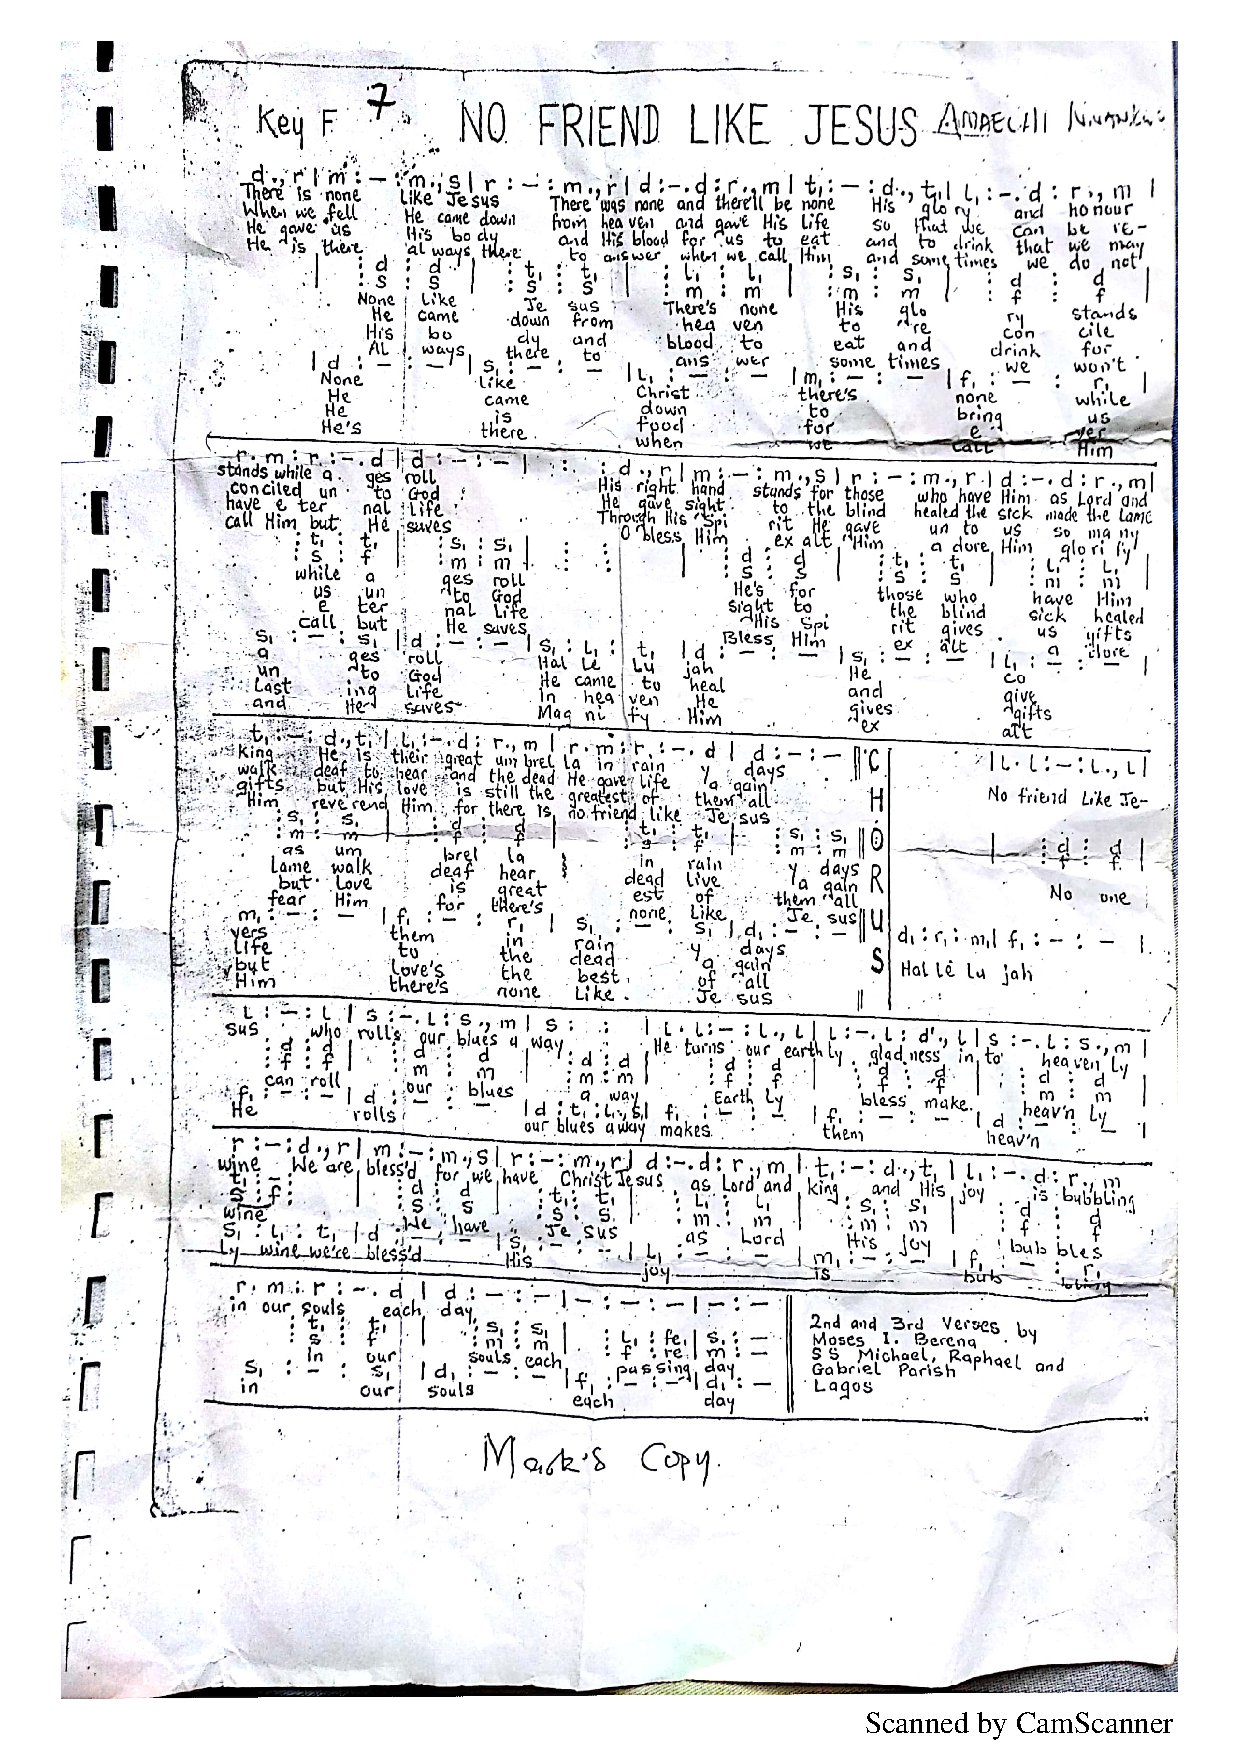 Key F 7 NO FRIEND LIKE JESUS
d., r | m : - : m., s | r : - : m., r | d : -. d : r., m | t, : - : d., t, | l, : -. d : r., m |
There is none like Jesus There was none and there'll be none His glo ry and honour
When we fell He came down from hea ven and gave His life so that we can be re-
He gave us His bo dy and His blood for us to eat and to drink that we may
He is there al ways there to answer when we call Him and sometimes we do not
| : d : d | : t, : t, | : l, : l, | : s, : s, | : d : d
: s : s : s : s : m : m : m : m : f : f
None Like Je sus There's none His glo ry stands
He came down from hea ven to re con cile
His bo dy and blood to eat and drink for
AL ways there to ans wer some times we won't
| d : - : - | s, : - : - | l, : - : - | m, : - : - | f, : - : r, |
None like Christ there's none while
He came down to bring us
He is food for e ver
He's there when we call Him
r. m : r : -. d | d : - : - | : : d., r | m : - : m., s | r : - : m., r | d : -. d : r., m |
stands while a ges roll His right hand stands for those who have Him as Lord and
conciled un to God He gave sight to the blind healed the sick made the lame
have e ter nal Life Through His Spi rit He gave un to us so ma ny
call Him but He saves O bless Him ex alt Him a dore Him glo ri fy
: t, : t, | : s, : s, | : : | : d : d | : t, : t, | : l, : l,
: s : f : m : m : s : s : s : s : m : m
while a ges roll He's for those who have Him
us un to God sight to the blind sick healed
e ter nal Life His Spi rit gives us gifts
call but He saves Bless Him ex alt a dore
s, : - : s, | d : - : - | s, : l, : t, | d : - : - | s, : - : - | l, : - : - |
a ges roll Hal le lu jah He co
un to God He came to heal and give
Last ing Life In hea ven He gives gifts
and He saves Mag ni fy Him ex alt
t, : - : d., t, | l, : -. d : r., m | r. m : r : -. d | d : - : - || CHORUS | l. l : - : l., l |
King He is their great um brel la in rain y days
walk deaf to hear and the dead He gave life Ya gain No friend Like Je-
gifts but His love is still the greatest of them all
Him reverend Him for there is no friend like Je sus
: s, : s, : d : d : t, : t, : s, : s, | : d : d |
: m : m : f : f : s : f : m : m : f : f
as um brel la in rain y days No one
Lame walk deaf hear dead live Ya gain
but Love is great est of them all
fear Him for there's none Like Je sus
m, : - : - | f, : - : r, | s, : - : s, | d, : - : - || d, : r, : m, | f, : - : - |
vers them in rain y days Hal le lu jah
Life to the dead Ya gain
but Love's the best of all
Him there's none Like Je sus
l : - : l | s : -. l : s., m | s : : | l. l : - : l., l | l : -. l : d', l | s : -. l : s., m |
sus who rolls our blues a way He turns our earth ly gladness in to heaven ly
: d : d | : d : d : d : d | : d : d : d : d : d : d
: f : f : m : m : m : m : f : f : f : f : m : m
can roll our blues a way Earth Ly bless make heav'n ly
f, : - : - | d : - : - | d : t, : l,., s, | f, : - : - | f, : - : - | d : - : - |
He rolls our blues away makes them heav'n
r : - : d., r | m : - : m., s | r : - : m., r | d : -. d : r., m | t, : - : d., t, | l, : -. d : r., m
wine We are bless'd for we have Christ Jesus as Lord and king and His joy is bubbling
: t, : : | : d : d | : t, : t, | : l, : l, | : s, : s, | : d : d
: s : f : : s : s : s : s : m : m : m : m : f : f
wine We have Je sus as Lord His joy bub bles
s, : l, : t, | d : - : - | s, : - : - | l, : - : - | m, : - : - | f, : - : r,
Ly wine we're bless'd His joy is bub bling
r. m : r : -. d | d : - : - | - : - : - | - : -
in our souls each day
: t, : t, | : s, : s, | : l, : fe, | s, : -
: s : f : m : m : f : re | m : -
in our souls each passing day
s, : - : s, | d, : - : - | f, : - : - | d, : -
in our souls each day
2nd and 3rd Verses by
Moses I. Berena
S S Michael, Raphael and
Gabriel Parish
Lagos
Mark's Copy.
Scanned by CamScanner